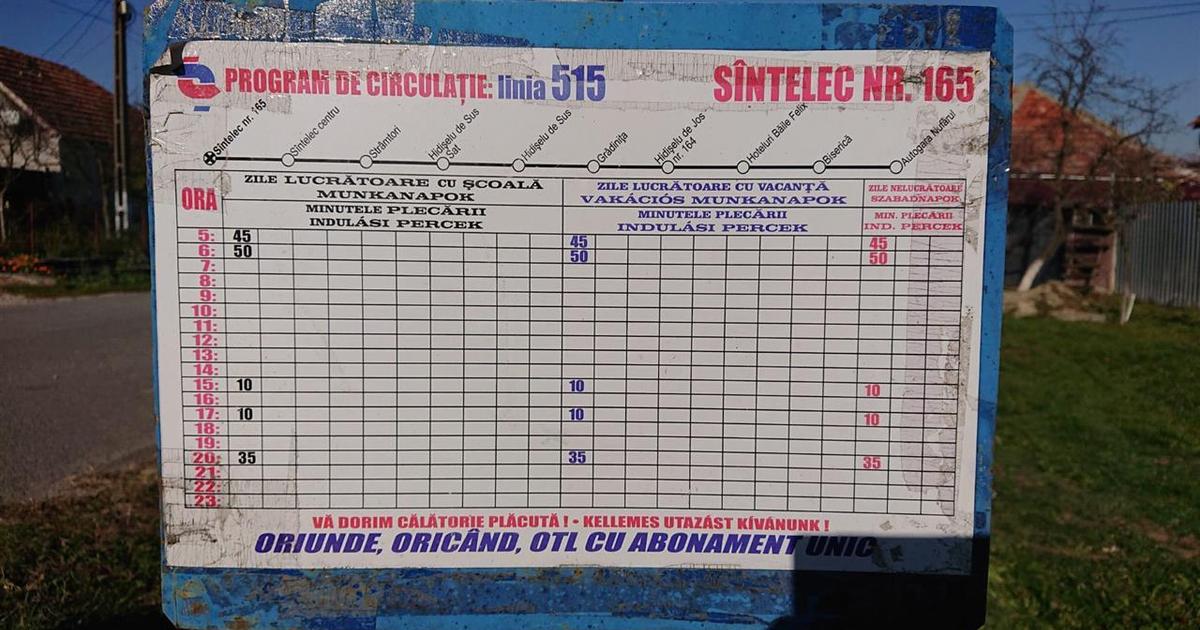 PROGRAM DE CIRCULAȚIE: linia 515 SÎNTELEC NR. 165
Sîntelec nr. 165
Sîntelec centru
Strâmtori
Hidișelu de Sus Sat
Hidișelu de Sus
Grădinița
Hidișelu de Jos nr. 164
Hoteluri Băile Felix
Biserică
Autogara Nufărul
ORA
ZILE LUCRĂTOARE CU ȘCOALĂ
MUNKANAPOK
MINUTELE PLECĂRII
INDULÁSI PERCEK
ZILE LUCRĂTOARE CU VACANȚĂ
VAKÁCIÓS MUNKANAPOK
MINUTELE PLECĂRII
INDULÁSI PERCEK
ZILE NELUCRĂTOARE
SZABADNAPOK
MIN. PLECĂRII
IND. PERCEK
5: 45 45 45
6: 50 50 50
7:
8:
9:
10:
11:
12:
13:
14:
15: 10 10 10
16:
17: 10 10 10
18:
19:
20: 35 35 35
21:
22:
23:
VĂ DORIM CĂLĂTORIE PLĂCUTĂ ! • KELLEMES UTAZÁST KÍVÁNUNK !
ORIUNDE, ORICÂND, OTL CU ABONAMENT UNIC